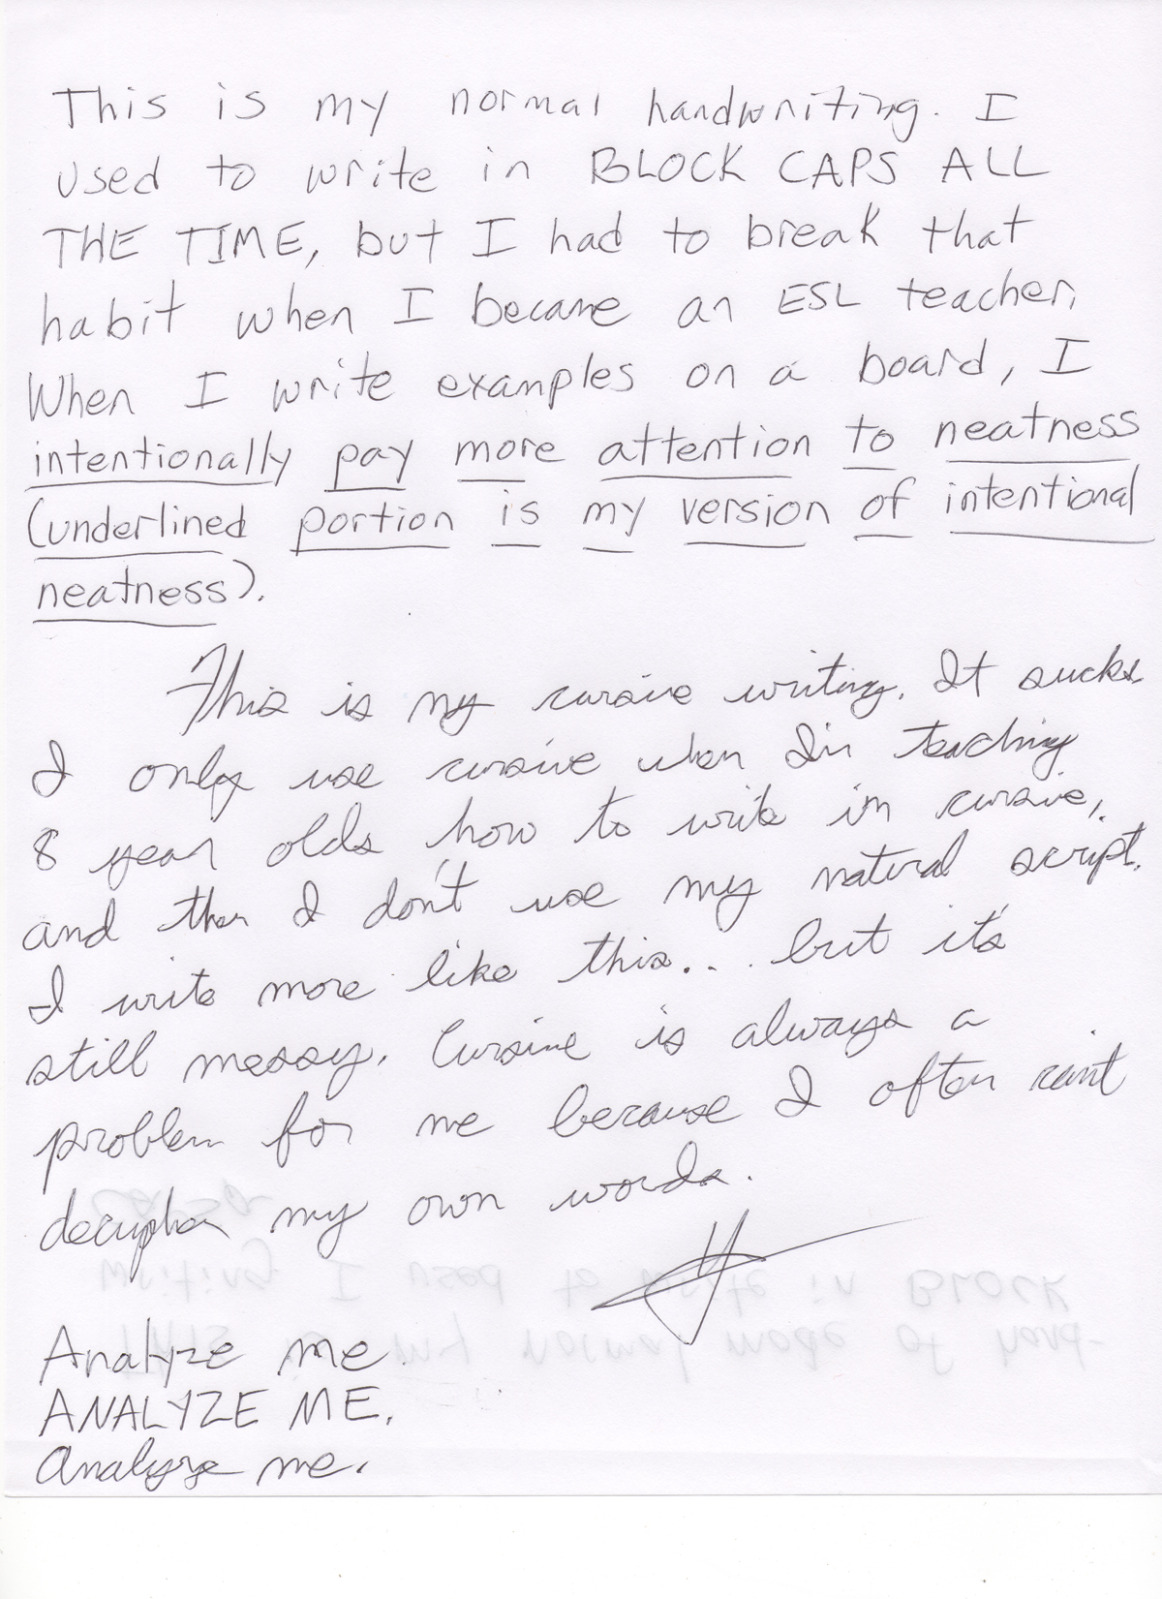 This is my normal handwriting. I
used to write in BLOCK CAPS ALL
THE TIME, but I had to break that
habit when I became an ESL teacher.
When I write examples on a board, I
intentionally pay more attention to neatness
(underlined portion is my version of intentional
neatness).
This is my cursive writing. It sucks.
I only use cursive when I'm teaching
8 year olds how to write in cursive,
and then I don't use my natural script.
I write more like this... but it's
still messy. Cursive is always a
problem for me because I often can't
decipher my own words.
Analyze me.
ANALYZE ME.
Analyze me.